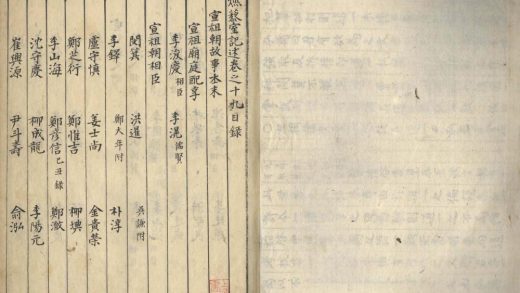 燃藜室記述卷之十九目錄
宣祖朝故事本末
宣祖廟庭配享
李浚慶 相臣 李滉 儒賢
宣祖朝相臣
閔箕 洪暹 吳謙附
李鐸 鄭大年附 朴淳
盧守慎 姜士尚 金貴榮
鄭芝衍 鄭惟吉 柳㙉
李山海 鄭彥信 己丑錄 鄭澈
沈守慶 柳成龍 李陽元
崔興源 尹斗壽 俞泓